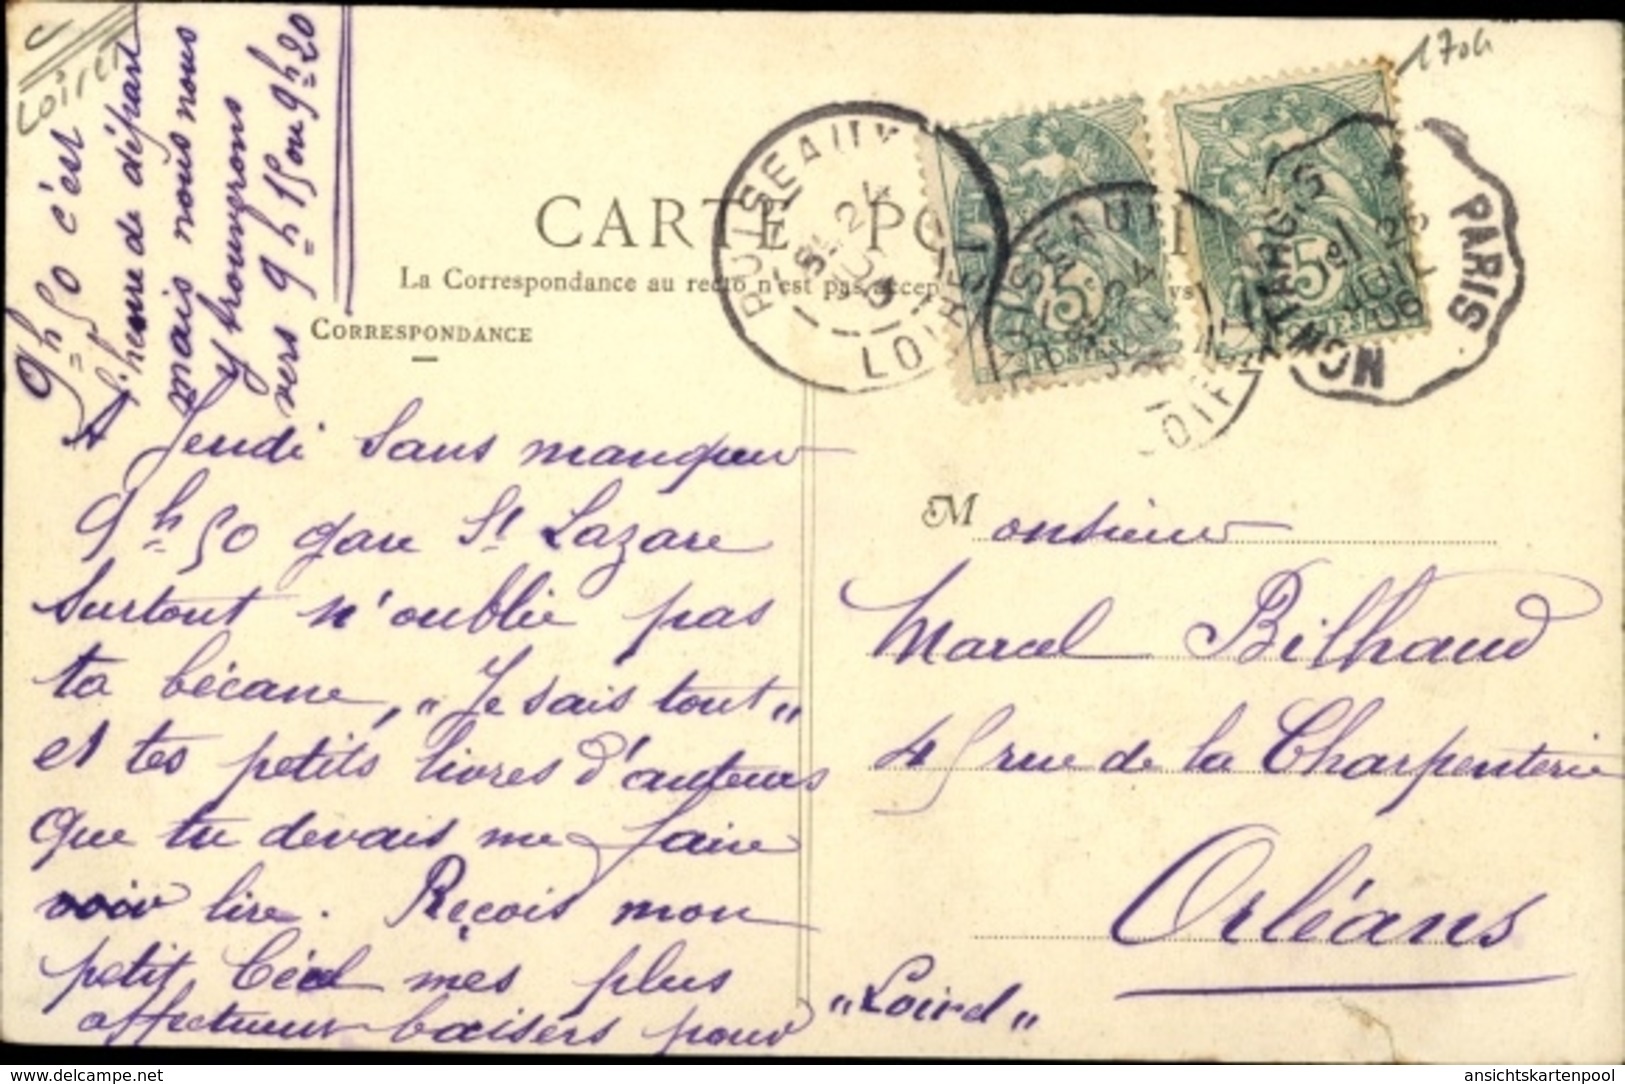 Loiret
9h50 c'est
l'heure de départ
mais nous nous
y trouverons
vers 9h15 ou 9h20
1704
CARTE PO
La Correspondance au recto n'est pas accep
CORRESPONDANCE
PUISEAUX
LOIRET
24
PUISEAUX
24
LOIRET
5c
POSTES
5
MONTARGIS
PARIS
1e/ 25
JUIL
06
A Jeudi sans manquer
9h50 gare St Lazare
Surtout n'oublie pas
ta bécane, "Je sais tout"
et tes petits livres d'auteurs
que tu devais me faire
voir lire. Reçois mon
petit mes plus
affectueux baisers pour
Monsieur
Marcel Bilhaud
45 rue de la Charpenterie
Orléans
"Loiret"
www.ansichtskartenpool.de
ansichtskartenpool